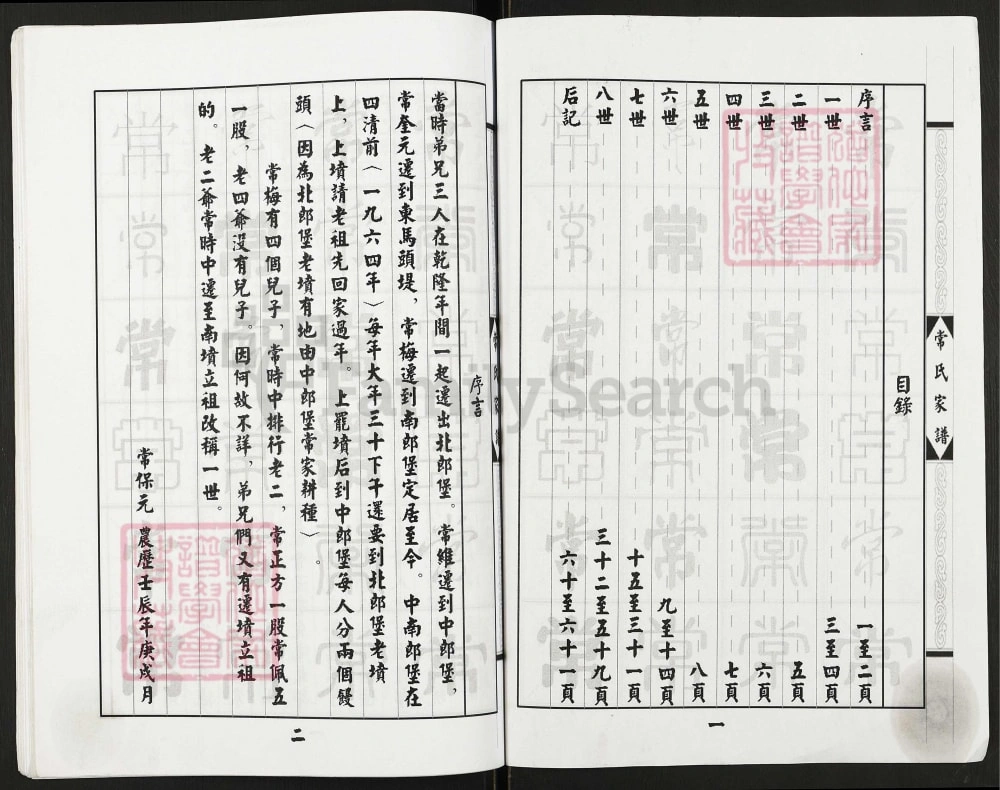 常氏家譜
目錄
序言 一至二頁
一世 三至四頁
二世 五頁
三世 六頁
四世 七頁
五世 八頁
六世 九至十四頁
七世 十五至三十一頁
八世 三十二至五十九頁
后記 六十至六十一頁
一
序言
當時弟兄三人在乾隆年間一起遷出北郎堡。常維遷到中郎堡，
常奎元遷到東馬頭堤，常梅遷到南郎堡定居至今。中南郎堡在
四清前（一九六四年）每年大年三十下午還要到北郎堡老墳
上，上墳請老祖先回家過年。上罷墳后到中郎堡每人分兩個饅
頭（因為北郎堡老墳有地由中郎堡常家耕種）。
常梅有四個兒子，常時中排行老二，常正方一股常佩五
一股，老四爺沒有兒子。因何故不詳，弟兄們又有遷墳立祖
的。老二爺常時中遷至南墳立祖改稱一世。
常保元 農歷壬辰年庚戌月
二
FamilySearch